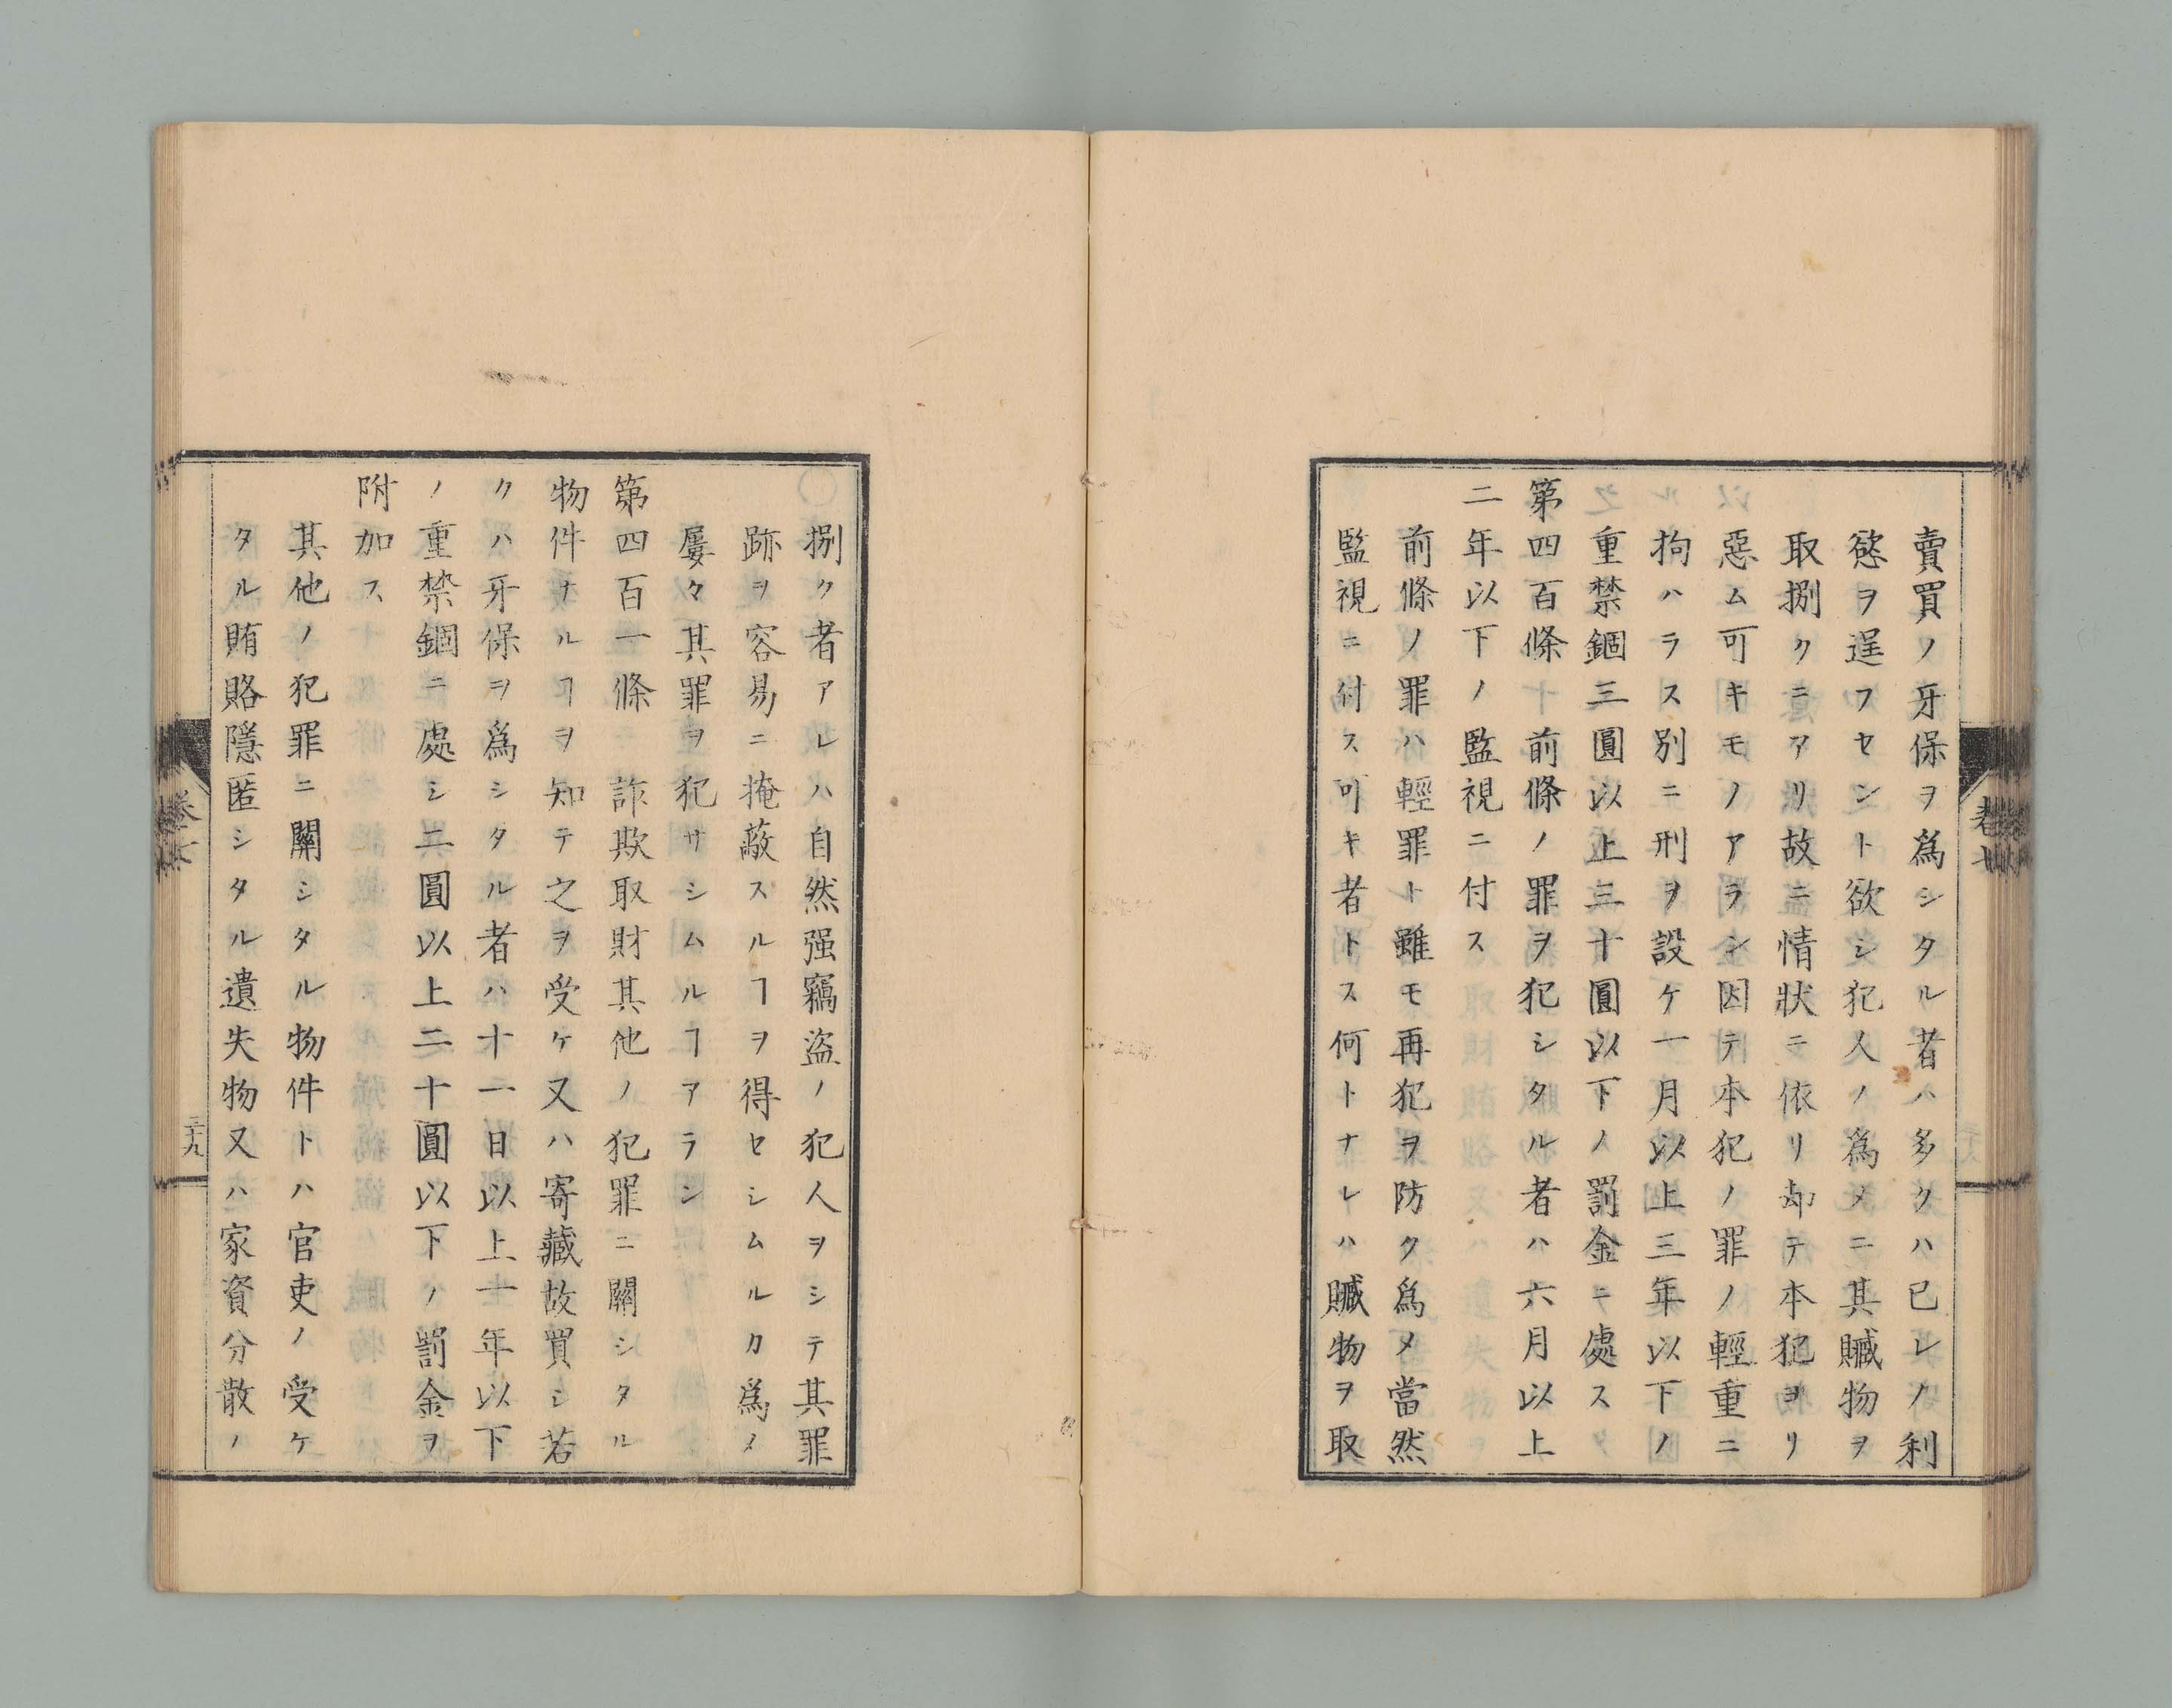 賣買ノ牙保ヲ爲シタル者ハ多クハ已レノ利
慾ヲ逞フセント欲シ犯人ノ爲メニ其贓物ヲ
取捌クニアリ故ニ情狀ニ依リ却テ本犯ヨリ
惡ム可キモノアラン因テ本犯ノ罪ノ輕重ニ
拘ハラス別ニ刑ヲ設ケ一月以上三年以下ノ
重禁錮三圓以上三十圓以下ノ罰金ニ處スタ
第四百條 前條ノ罪ヲ犯シタル者ハ六月以上
二年以下ノ監視ニ付ス
前條ノ罪ハ輕罪ト雖モ再犯ヲ防ク爲メ當然
監視ニ付ス可キ者トス何トナレハ贓物ヲ取
捌ク者アレハ自然强竊盜ノ犯人ヲシテ其罪
跡ヲ容易ニ掩蔽スルヿヲ得セシムルカ爲メ
屢々其罪ヲ犯サシムルヿアラン
第四百一條 詐欺取財其他ノ犯罪ニ關シタル
物件ナルヿヲ知テ之ヲ受ケ又ハ寄藏故買シ若
クハ牙保ヲ爲シタル者ハ十一日以上一年以下
ノ重禁錮ニ處シ二圓以上二十圓以下ノ罰金ヲ
附加ス
其他ノ犯罪ニ關シタル物件トハ官吏ノ受ケ
タル賄賂隱匿シタル遺失物又ハ家資分散ノ
二十九